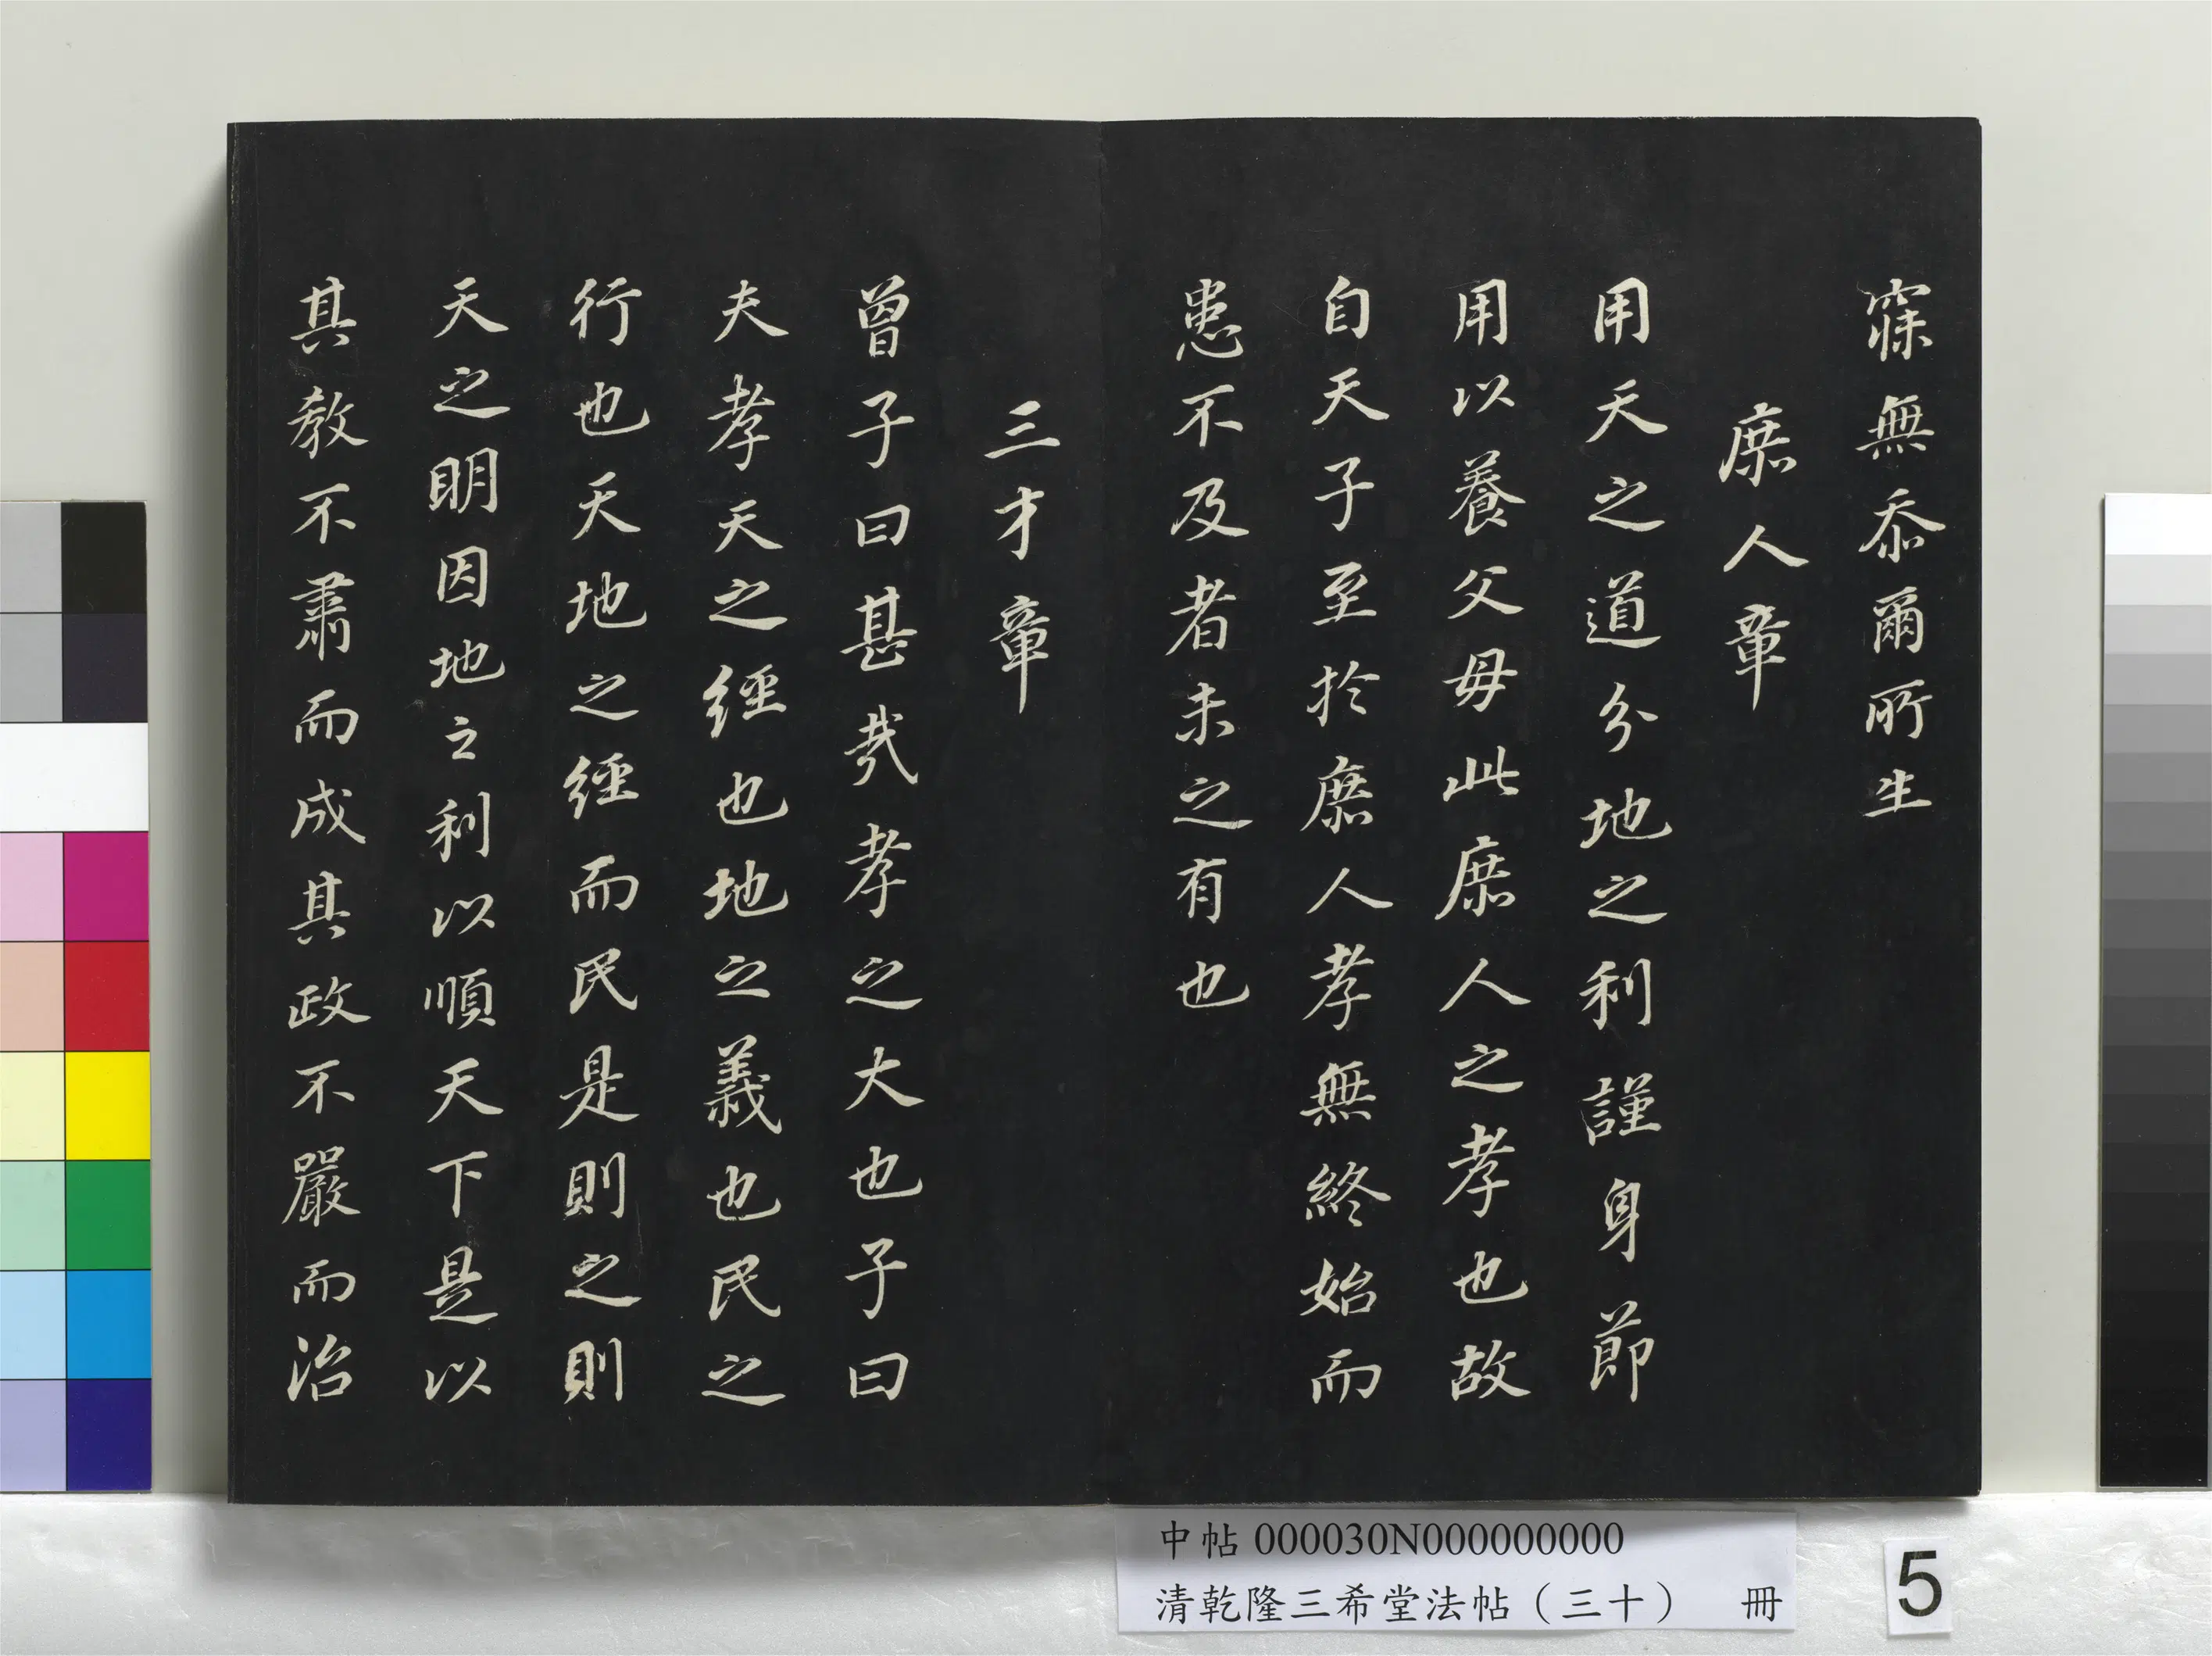 寐無忝爾所生
庶人章
用天之道分地之利謹身節
用以養父母此庶人之孝也故
自天子至於庶人孝無終始而
患不及者未之有也
三才章
曾子曰甚哉孝之大也子曰
夫孝天之經也地之義也民之
行也天地之經而民是則之則
天之明因地之利以順天下是以
其教不肅而成其政不嚴而治
中帖 000030N000000000
清乾隆三希堂法帖（三十） 冊
5